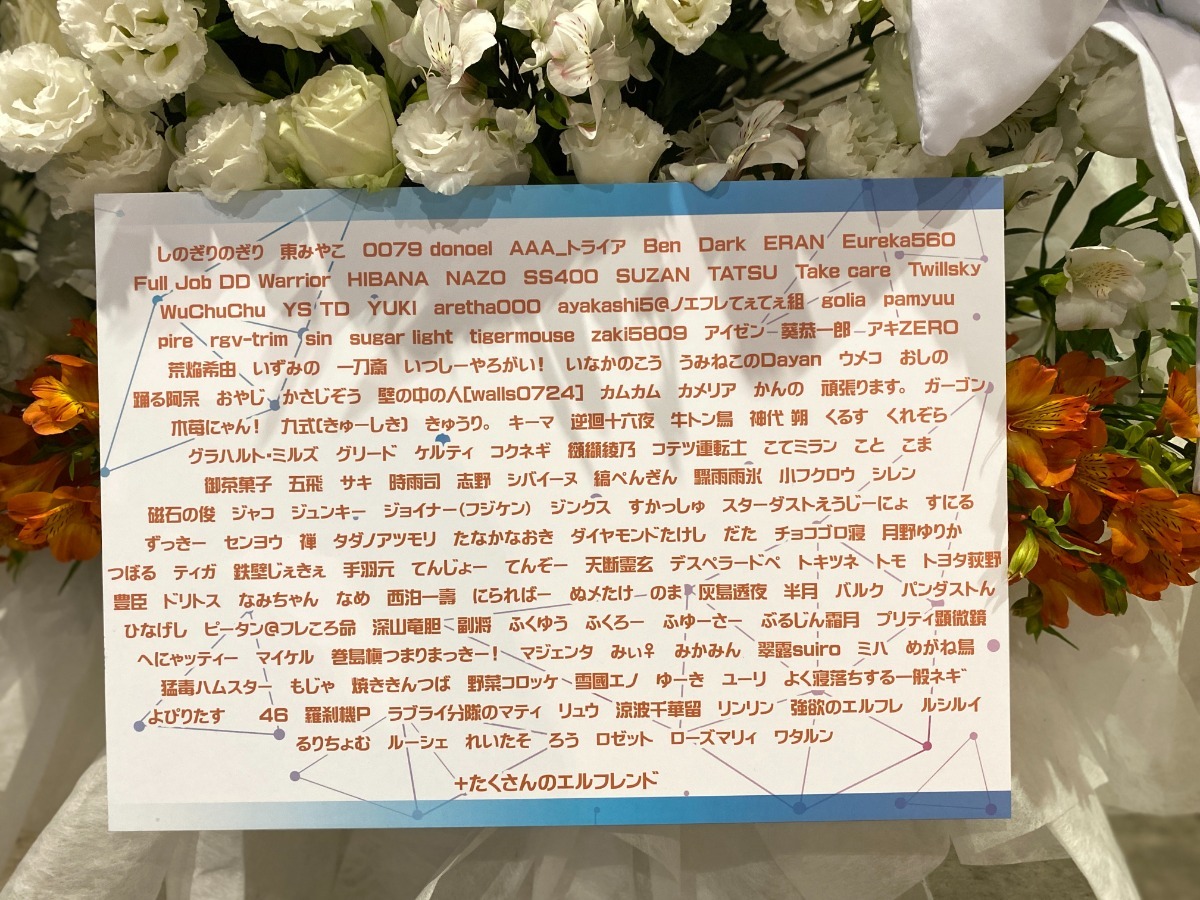 しのぎりのぎり 東みやこ 0079 donoel AAA_トライア Ben Dark ERAN Eureka560
Full Job DD Warrior HIBANA NAZO SS400 SUZAN TATSU Take care Twillsky
WuChuChu YS TD YUKI aretha000 ayakashi5@ノエフレてぇてぇ組 golia pamyuu
pire rgv-trim sin sugar light tigermouse zaki5809 アイゼン 葵恭一郎 アキZERO
荒焔希由 いずみの 一刀斎 いつしーやろがい! いなかのこう うみねこのDayan ウメコ おしの
踊る阿呆 おやじ かさじぞう 壁の中の人[walls0724] カムカム カメリア かんの 頑張ります。 ガーゴン
木苺にゃん! 九式(きゅーしき) きゅうり。 キーマ 逆廻十六夜 牛トン鳥 神代 朔 くるす くれぞら
グラハルト・ミルズ グリード ケルティ コクネギ 纐纈綾乃 コテツ運転士 こてミラン こと こま
御茶菓子 五飛 サキ 時雨司 志野 シバイーヌ 縞ぺんぎん 驟雨雨氷 小フクロウ シレン
磁石の俊 ジャコ ジュンキー ジョイナー(フジケン) ジンクス すかっしゅ スターダストえうじーにょ すにる
ずっきー センヨウ 禅 タダノアツモリ たなかなおき ダイヤモンドたけし だた チョココロ寝 月野ゆりか
つぼる ティガ 鉄壁じぇきぇ 手羽元 てんじょー てんぞー 天断霊玄 デスペラードペ トキツネ トモ トヨタ荻野
豊臣 ドリトス なみちゃん なめ 西泊一壽 にらればー ぬメたけ のま 灰島透夜 半月 バルク パンダストん
ひなげし ピータン@フレころ命 深山竜胆 副将 ふくゆう ふくろー ふゆーさー ぶるじん霜月 プリティ顕微鏡
へにゃッティー マイケル 巻島槇つまりまっきー! マジェンタ みぃ♀ みかみん 翠露suiro ミハ めがね鳥
猛毒ハムスター もじゃ 焼ききんつば 野菜コロッケ 雪國エノ ゆーき ユーリ よく寝落ちする一般ネギ
よぴりたす 46 羅刹機P ラブライ分隊のマティ リュウ 涼波千華留 リンリン 強欲のエルフレ ルシルイ
るりちょむ ルーシェ れいたそ ろう ロゼット ローズマリィ ワタルン
+たくさんのエルフレンド